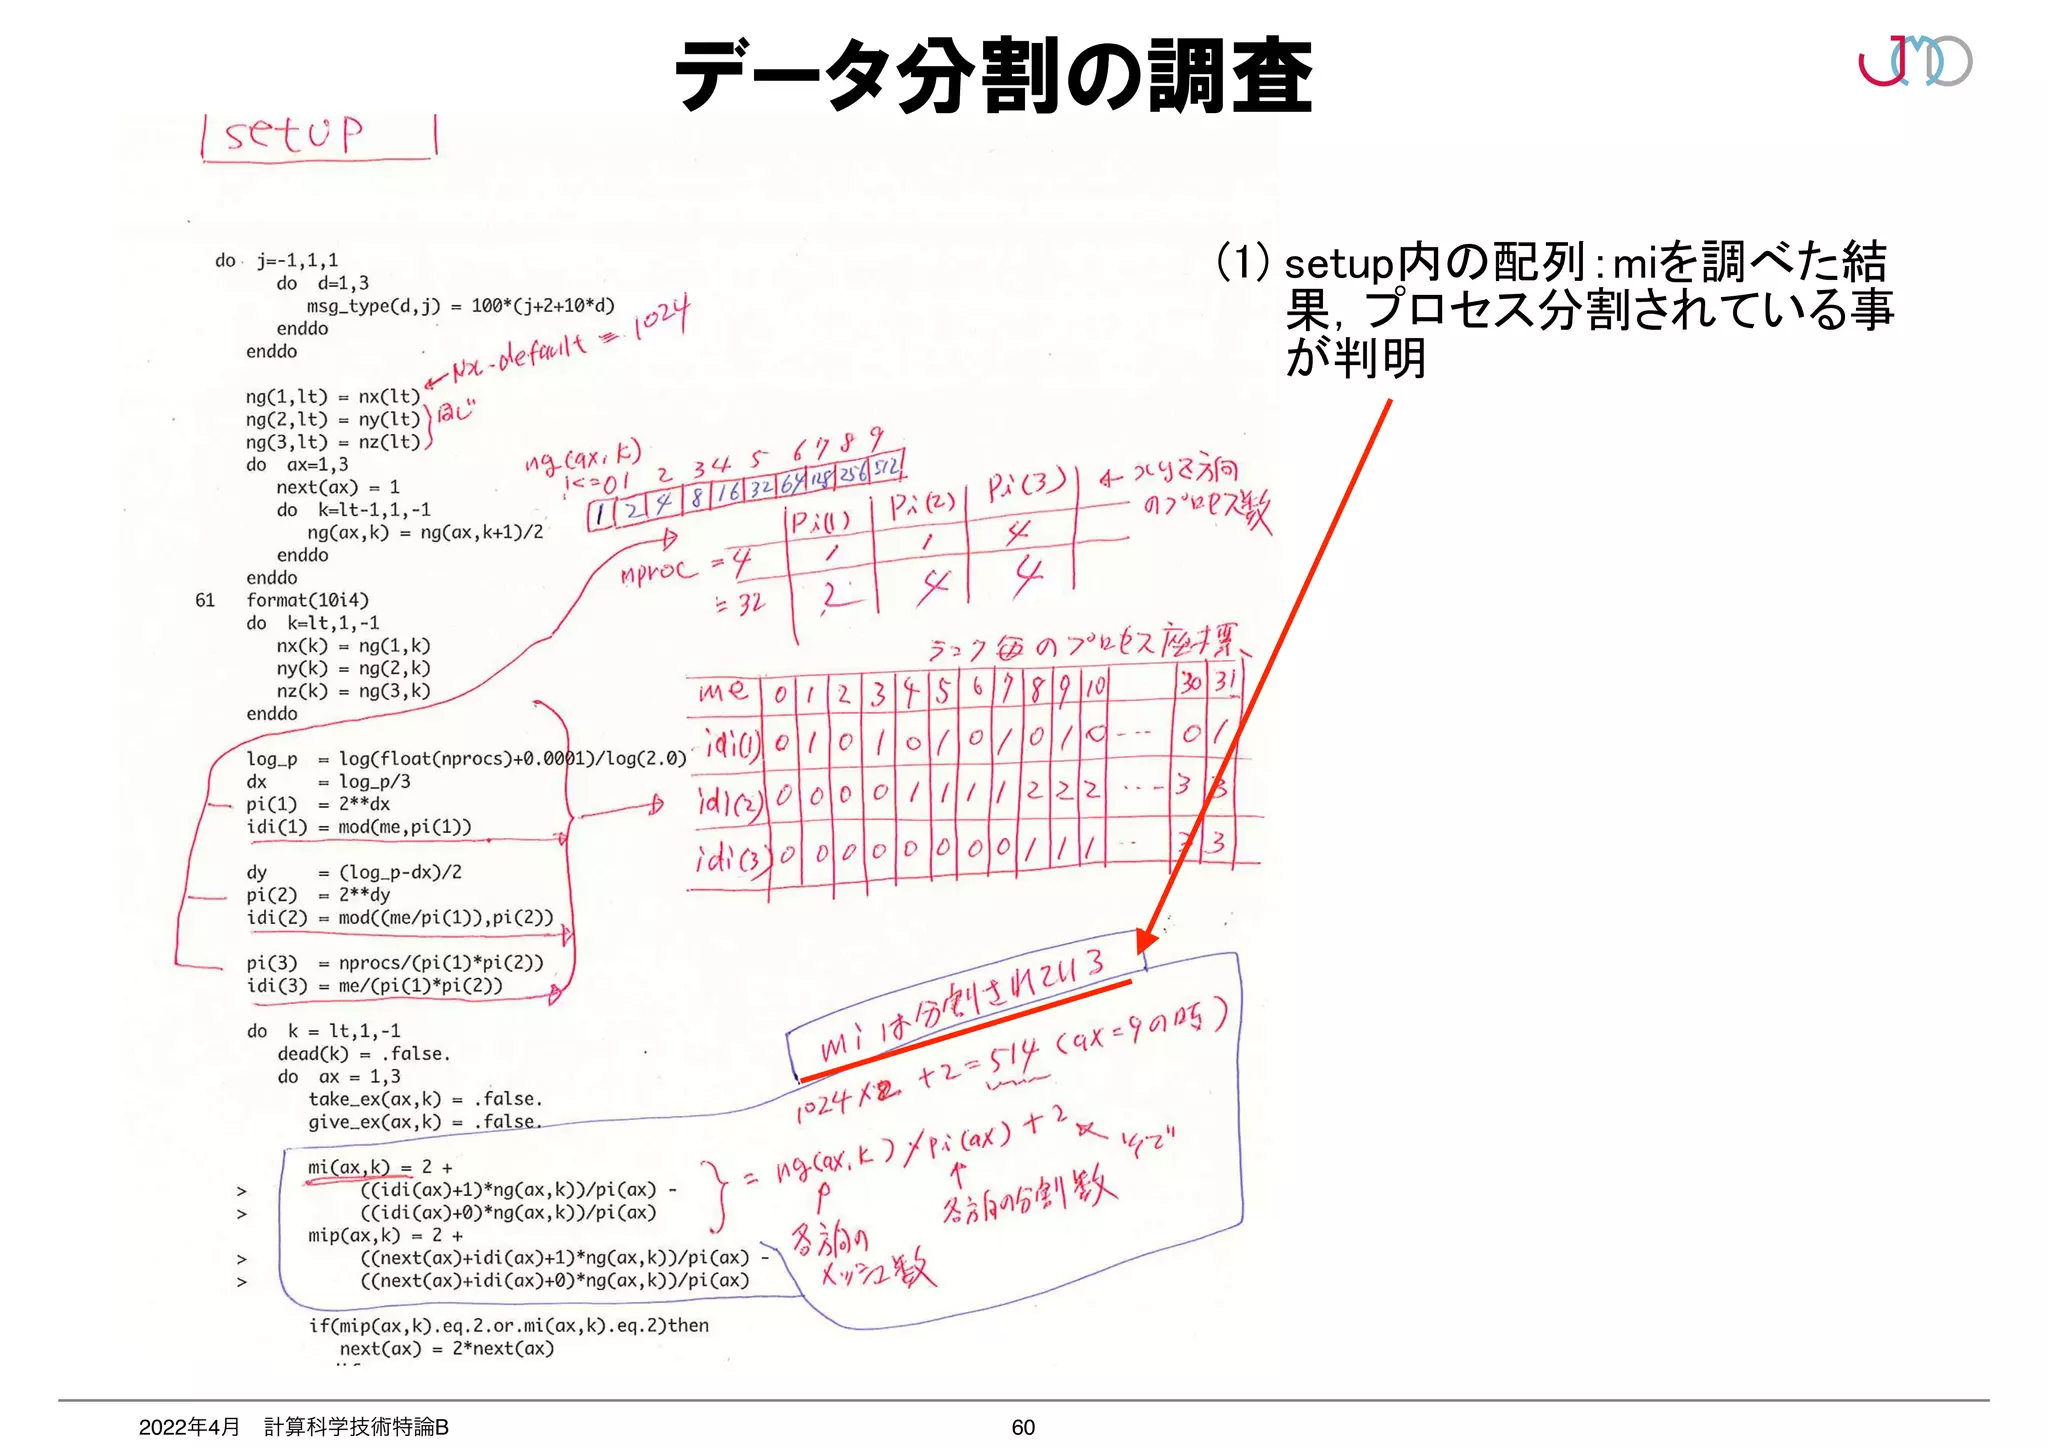 データ分割の調査
setup
(1) setup内の配列：miを調べた結
果，プロセス分割されている事
が判明
do j=-1,1,1
do d=1,3
msg_type(d,j) = 100*(j+2+10*d)
enddo
enddo
← Nx-default = 1024
ng(1,lt) = nx(lt)
ng(2,lt) = ny(lt)
ng(3,lt) = nz(lt)
同じ
do ax=1,3
next(ax) = 1
do k=lt-1,1,-1
ng(ax,k) = ng(ax,k+1)/2
enddo
enddo
61 format(10i4)
do k=lt,1,-1
nx(k) = ng(1,k)
ny(k) = ng(2,k)
nz(k) = ng(3,k)
enddo
ng(ax,k)
0 1 2 3 4 5 6 7 8 9
1 2 4 8 16 32 64 128 256 512
Pi(1) Pi(2) Pi(3) ← xyz方向
のプロセス数
nproc = 4 1 1 4
= 32 2 4 4
ランク毎のプロセス座標
me 0 1 2 3 4 5 6 7 8 9 10 30 31
idi(1) 0 1 0 1 0 1 0 1 0 1 0 --- 0 1
idi(2) 0 0 0 0 1 1 1 1 2 2 2 --- 3 3
idi(3) 0 0 0 0 0 0 0 0 1 1 1 -- 3 3
log_p = log(float(nprocs)+0.0001)/log(2.0)
dx = log_p/3
pi(1) = 2**dx
idi(1) = mod(me,pi(1))
dy = (log_p-dx)/2
pi(2) = 2**dy
idi(2) = mod((me/pi(1)),pi(2))
pi(3) = nprocs/(pi(1)*pi(2))
idi(3) = me/(pi(1)*pi(2))
do k = lt,1,-1
dead(k) = .false.
do ax = 1,3
take_ex(ax,k) = .false.
give_ex(ax,k) = .false.
miは分割されている
+2=514 (ax=9の時)
mi(ax,k) = 2 +
> ((idi(ax)+1)*ng(ax,k))/pi(ax) -
> ((idi(ax)+0)*ng(ax,k))/pi(ax)
mip(ax,k) = 2 +
> ((next(ax)+idi(ax)+1)*ng(ax,k))/pi(ax) -
> ((next(ax)+idi(ax)+0)*ng(ax,k))/pi(ax)
= ng(ax,k)/pi(ax)+2
各方向の
メッシュ数
各方向の分割数
if(mip(ax,k).eq.2.or.mi(ax,k).eq.2)then
next(ax) = 2*next(ax)
2022年4月 計算科学技術特論B
60